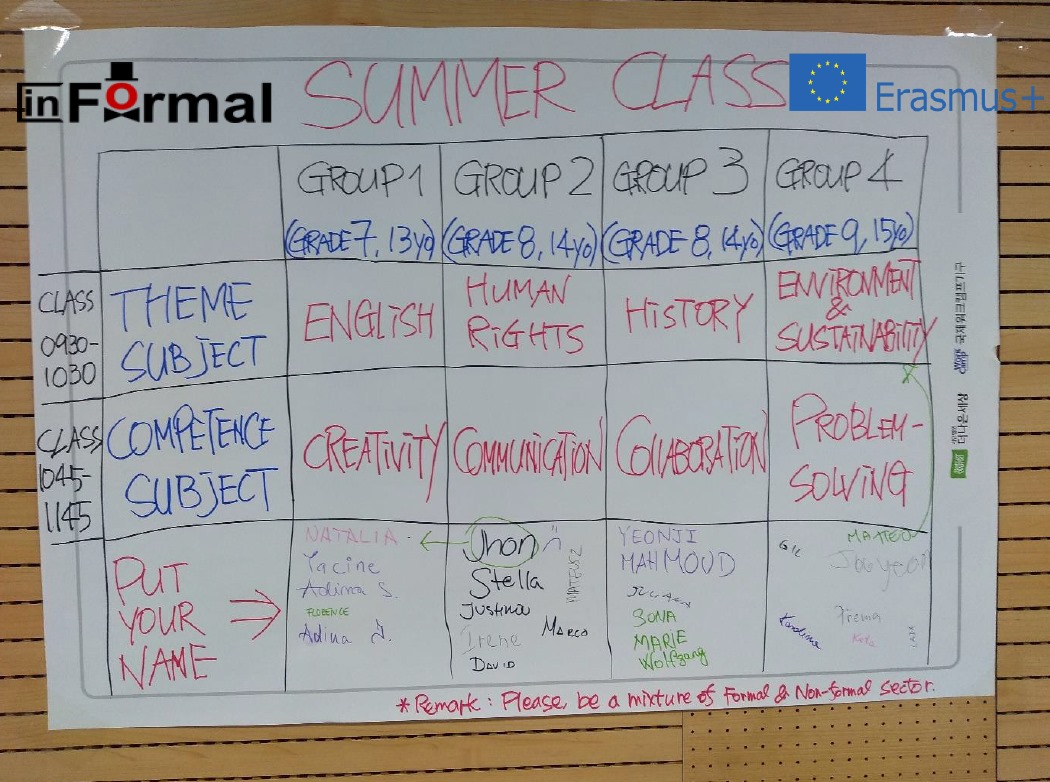 inFormal
SUMMER CLASS
Erasmus+
GROUP 1
(GRADE 7, 13yo)
GROUP 2
(GRADE 8, 14yo)
GROUP 3
(GRADE 8, 14yo)
GROUP 4
(GRADE 9, 15yo)
CLASS
0930-
1030
THEME
SUBJECT
ENGLISH
HUMAN
RIGHTS
HISTORY
ENVIRONMENT
&
SUSTAINABILITY
CLASS
1045-
1145
COMPETENCE
SUBJECT
CREATIVITY
COMMUNICATION
COllABORATION
PROBLEM-
SOLVING
PUT
YOUR
NAME
NATALIA
Yacine
Adina S.
FLORENCE
Adina
Jhon
Stella
Justina
Irene
DAVID
MATEUSZ
MARCO
YEONJI
MAHMOUD
BONA
MARIE
Wolfgang
GIL
MATTEO
Karolina
국제워크캠프기구
더나은세상
*Remark: Please, be a mixture of Formal & Non-formal sector.